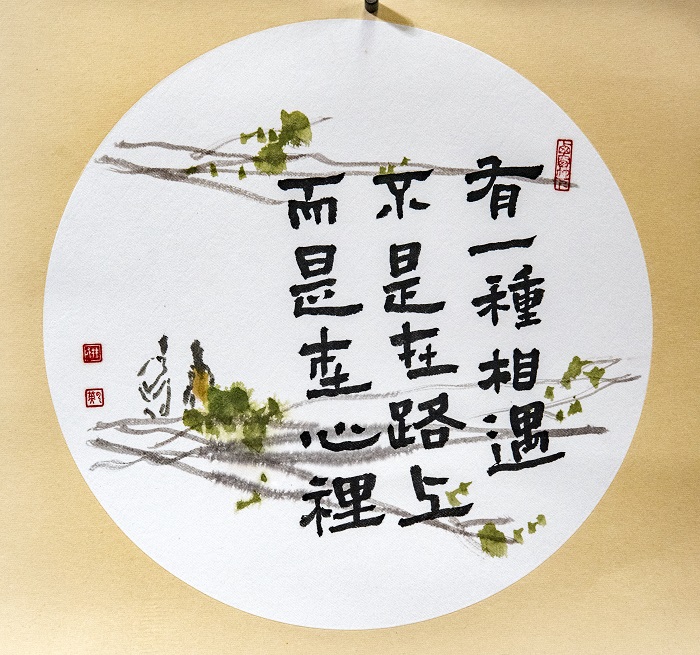 有一種相遇
不是在路上
而是在心裡